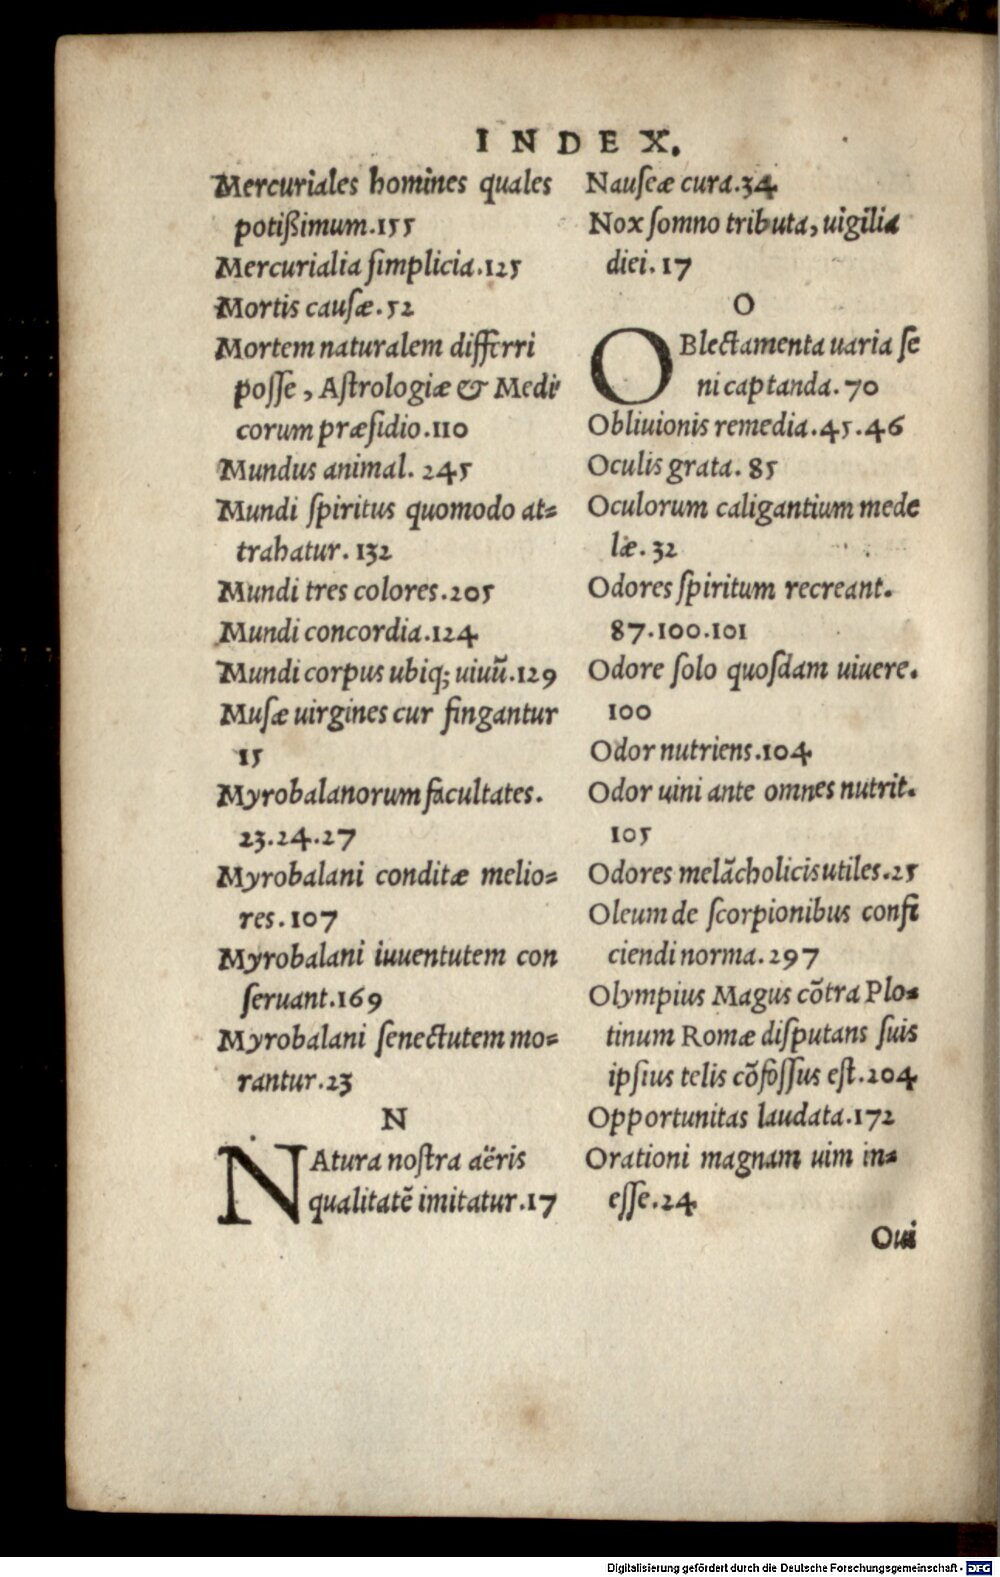 INDEX.
Mercuriales homines quales
potißimum.155
Mercurialia ſimplicia.125
Mortis cauſæ.52
Mortem naturalem differri
poſſe, Aſtrologiæ & Medi
corum præſidio.110
Mundus animal. 245
Mundi ſpiritus quomodo at=
trahatur. 132
Mundi tres colores.205
Mundi concordia.124
Mundi corpus ubiq; uiuũ.129
Muſæ uirgines cur fingantur
15
Myrobalanorum facultates.
23.24.27
Myrobalani conditæ melio=
res.107
Myrobalani iuuentutem con
ſeruant.169
Myrobalani ſenectutem mo=
rantur.23
N
NAtura noſtra aëris
qualitatẽ imitatur.17
Nauſeæ cura.34
Nox ſomno tributa, uigilia
diei. 17
O
OBlectamenta uaria ſe
ni captanda. 70
Obliuionis remedia.45.46
Oculis grata. 85
Oculorum caligantium mede
læ. 32
Odores ſpiritum recreant.
87.100.101
Odore ſolo quoſdam uiuere.
100
Odor nutriens.104
Odor uini ante omnes nutrit.
105
Odores melãcholicis utiles.25
Oleum de ſcorpionibus confi
ciendi norma. 297
Olympius Magus cõtra Plo=
tinum Romæ diſputans ſuis
ipſius telis cõfoſſus eſt.204
Opportunitas laudata.172
Orationi magnam uim in=
eſſe.24
Oui
Digitalisierung gefördert durch die Deutsche Forschungsgemeinschaft - DFG